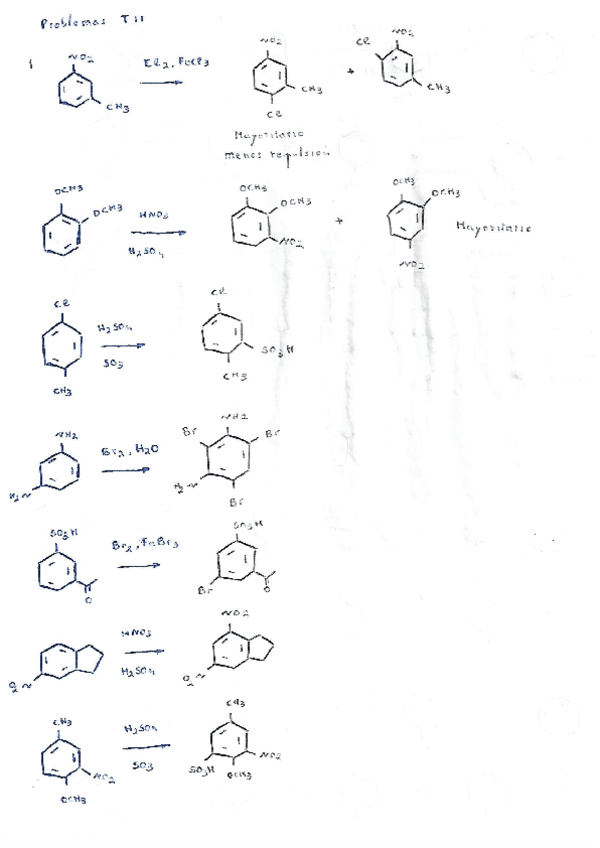 Problemas T11
1
NO2 CH3 Cl2, FeCl3 NO2 CH3 Cl + Cl NO2 CH3
Mayoritario
menos repulsión
OCH3 OCH3 HNO3 H2SO4 OCH3 OCH3 NO2 + OCH3 OCH3 NO2 Mayoritario
Cl CH3 H2SO4 SO3 Cl SO3H CH3
NH2 H2N Br2, H2O NH2 Br Br H2N Br
SO3H O Br2, FeBr3 SO3H Br O
O2N HNO3 H2SO4 NO2 O2N
CH3 NO2 OCH3 H2SO4 SO3 CH3 SO3H OCH3 NO2